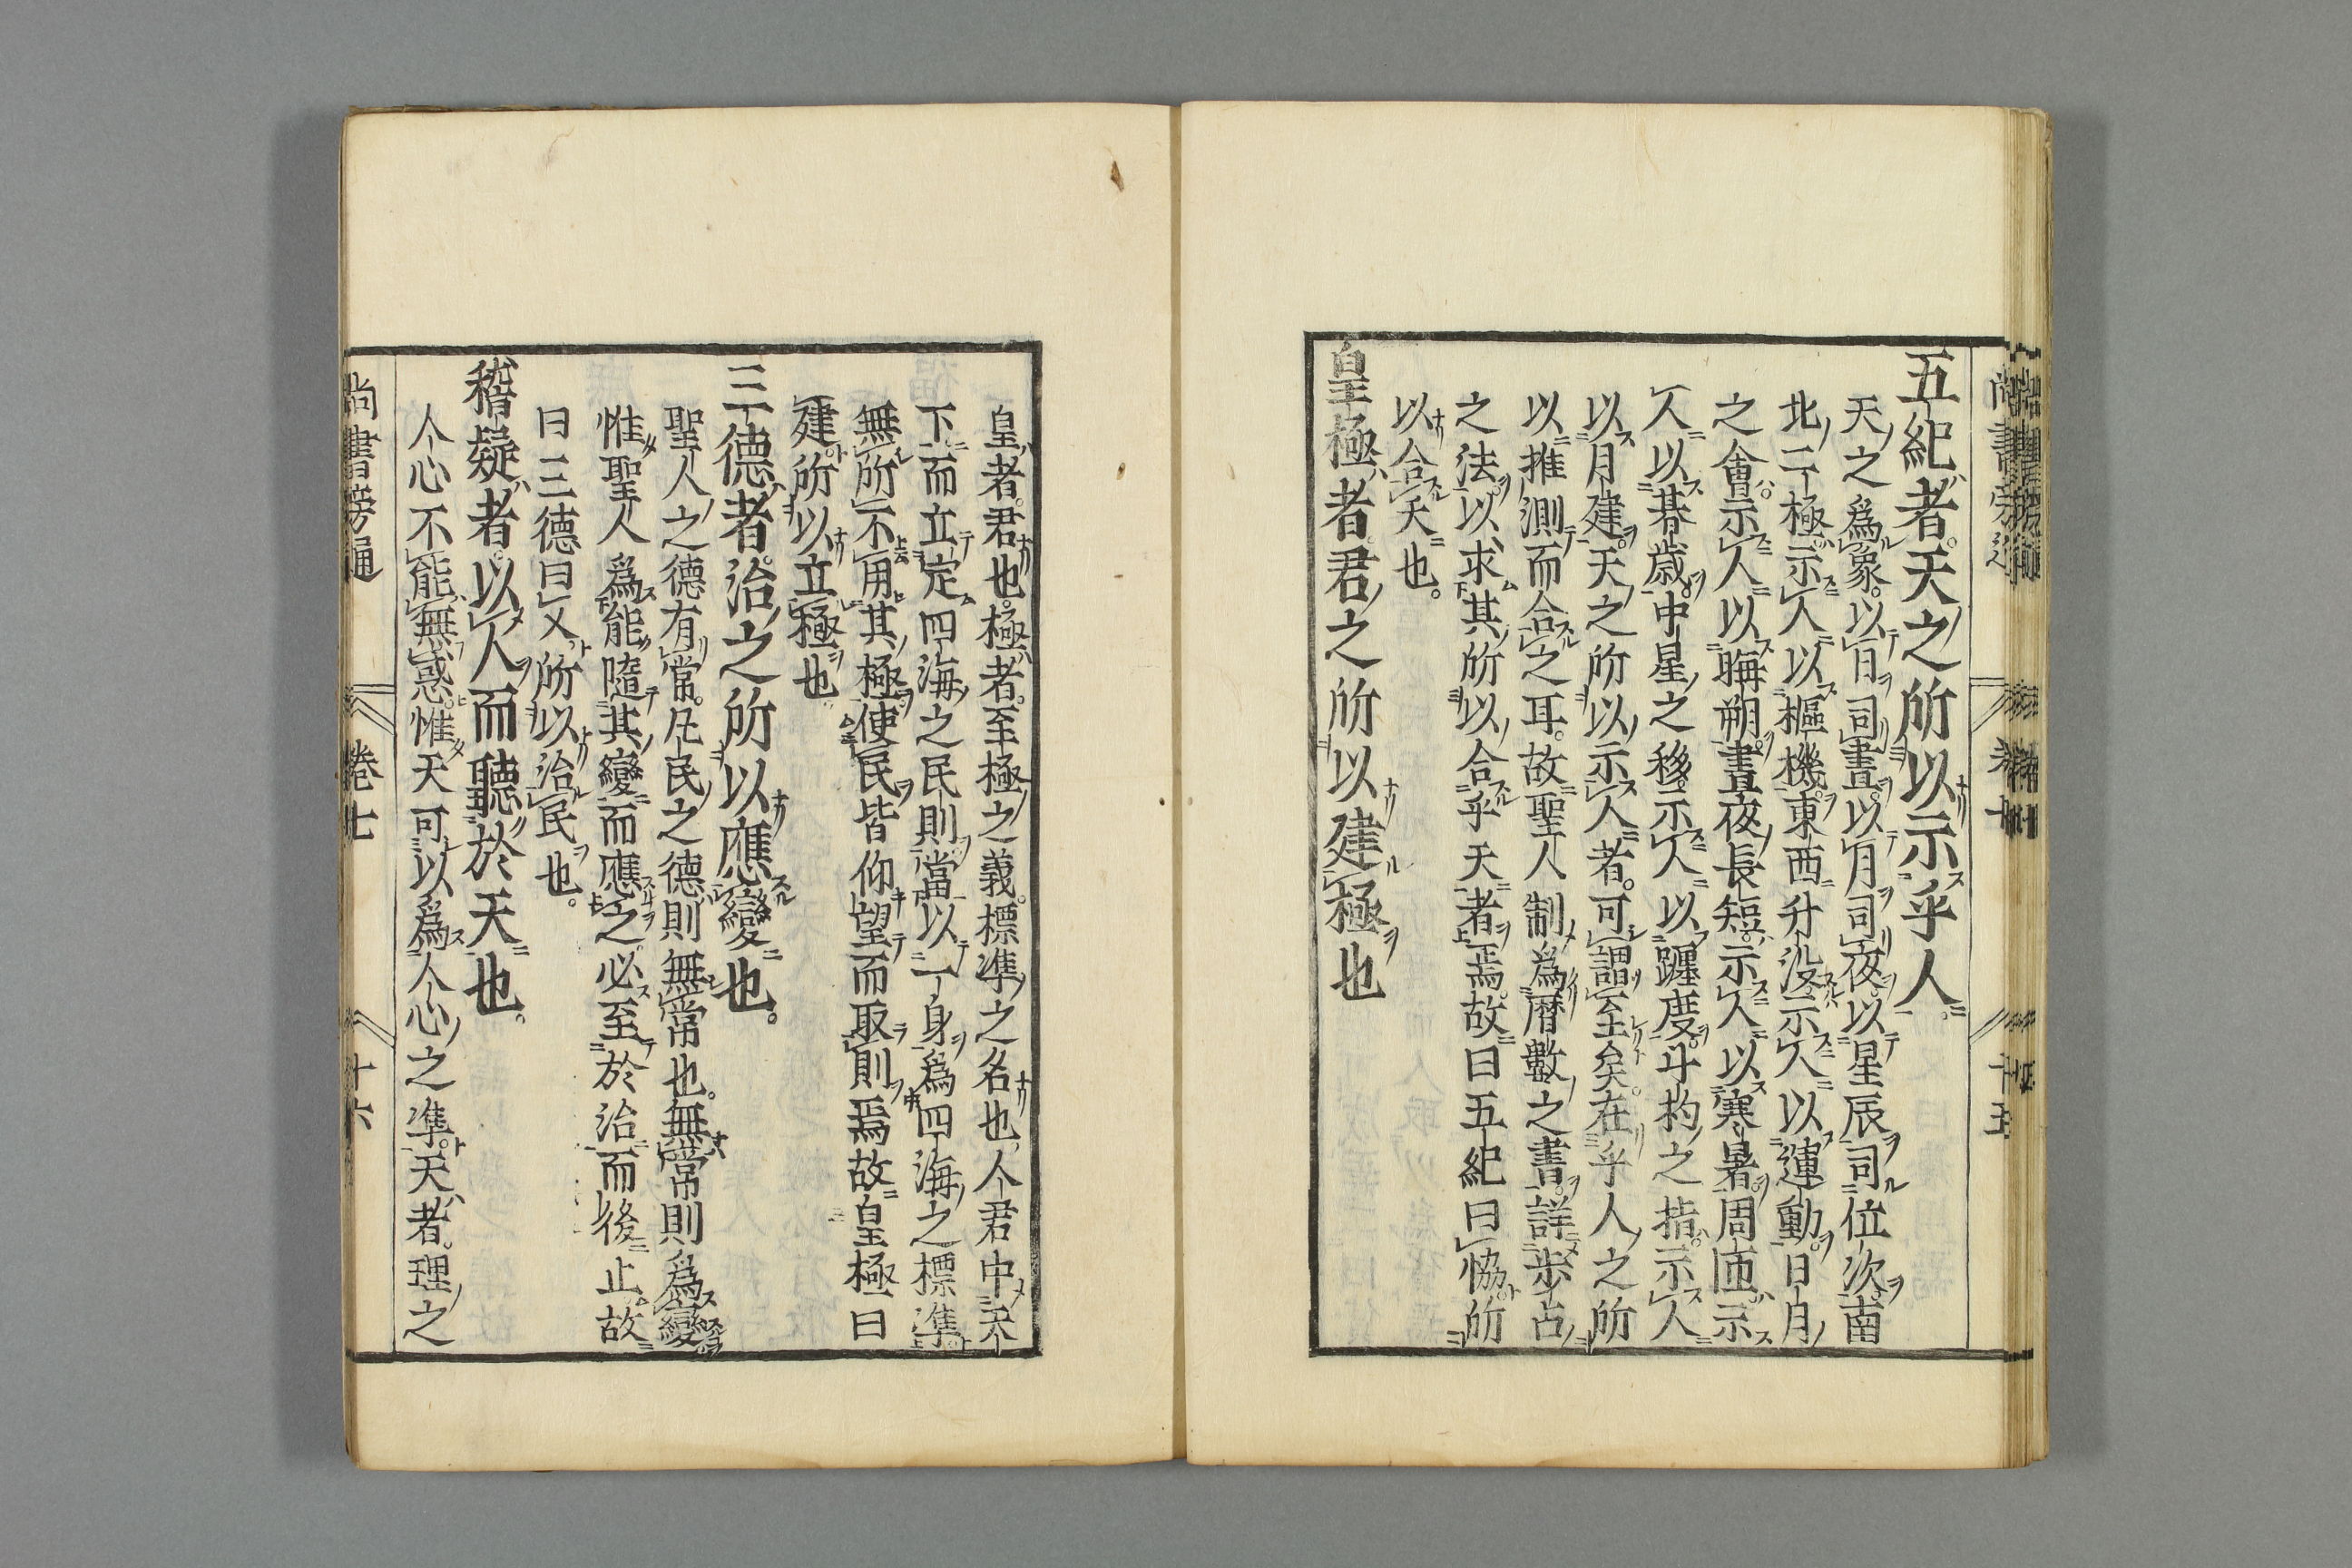 五紀者。天之所以示乎人。
天之爲象。以日司晝。以月司夜。以星辰司位次。南
北二極示人以樞機。東西升沒示人以運動。日月
之會。示人以晦朔。晝夜長短。示人以寒暑。周匝示
人以朞歲。中星之移。示人以躔度。斗杓之指。示人
以月建。天之所以示人者。可謂至矣。在乎人之所
以推測而合之耳。故聖人制爲曆數之書。詳步占
之法。以求其所以合乎天者焉。故曰五紀曰恊所
以合天也。
皇極者君之所以建極也
皇者。君也。極者。至極之義。標準之名也。人君中天
下而立定四海之民則當以一身爲四海之標準。
無所不用其極。使民皆仰望而取則焉故皇極曰
建。所以立極也。
三德者。治之所以應變也。
聖人之德有常。凡民之德則無常也。無常則爲變
惟聖人爲能隨其變而應之。必至於治而後止故
曰三德曰乂所以治民也。
稽疑者。以人而聽於天也。
人心不能無惑。惟天可以爲人心之準。天者。理之
尚書旁通 卷七 十六